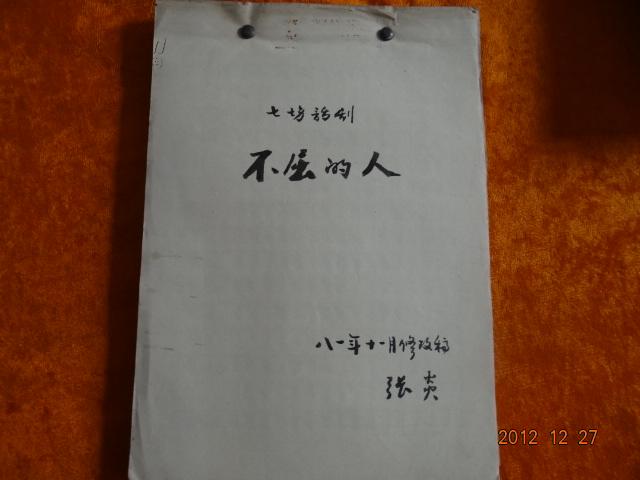 七场话剧
不屈的人
八一年十一月修改稿
张炎
2012 12 27